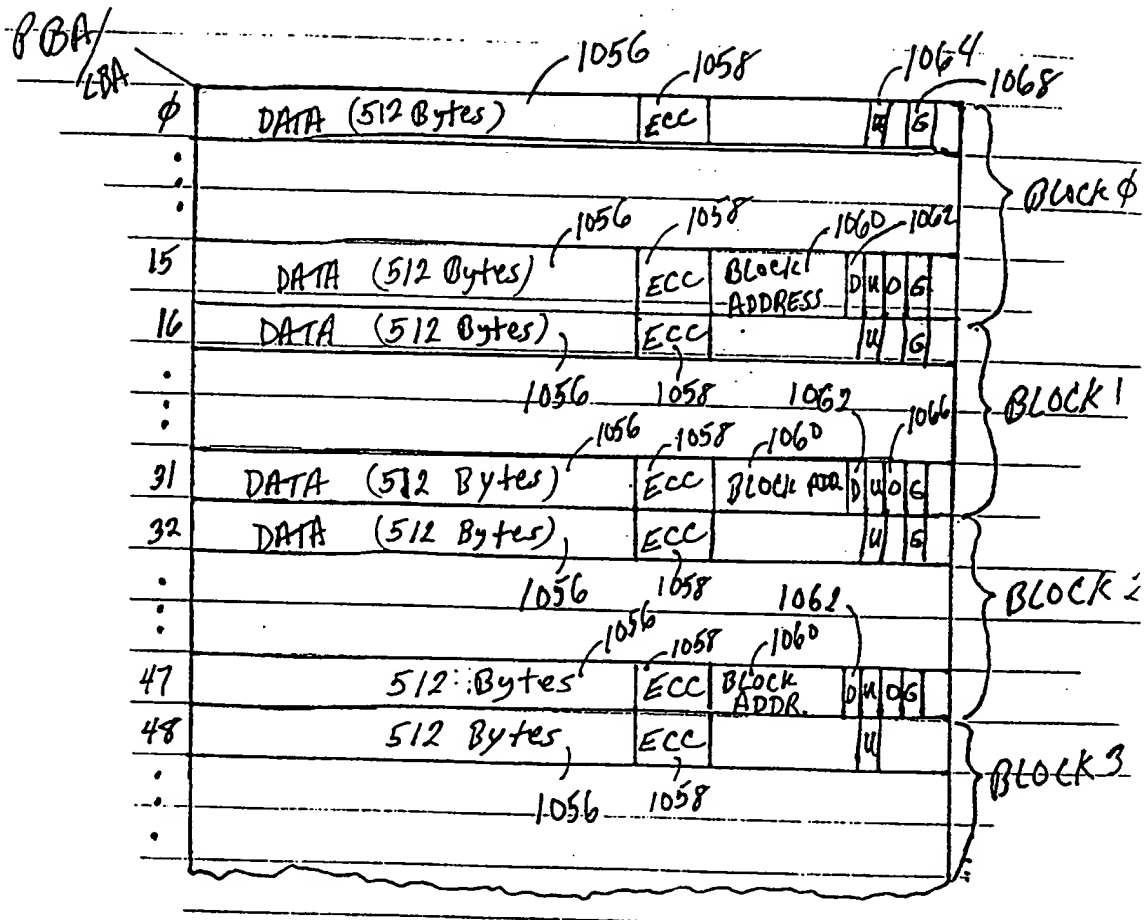 PBA/
LBA
1056 1058 1064 1068
φ DATA (512 Bytes) ECC U G
BLOCK φ
1056 1058 1060 1062
15 DATA (512 Bytes) ECC BLOCK ADDRESS D U O G
16 DATA (512 Bytes) ECC U G
1056 1058 1062 1066
BLOCK 1
1056 1058 1060
31 DATA (512 Bytes) ECC BLOCK ADDR D U O G
32 DATA (512 Bytes) ECC U G
1056 1058 1062
BLOCK 2
1056 1058 1060
47 512 Bytes ECC BLOCK ADDR. D U O G
48 512 Bytes ECC U
BLOCK 3
1056 1058